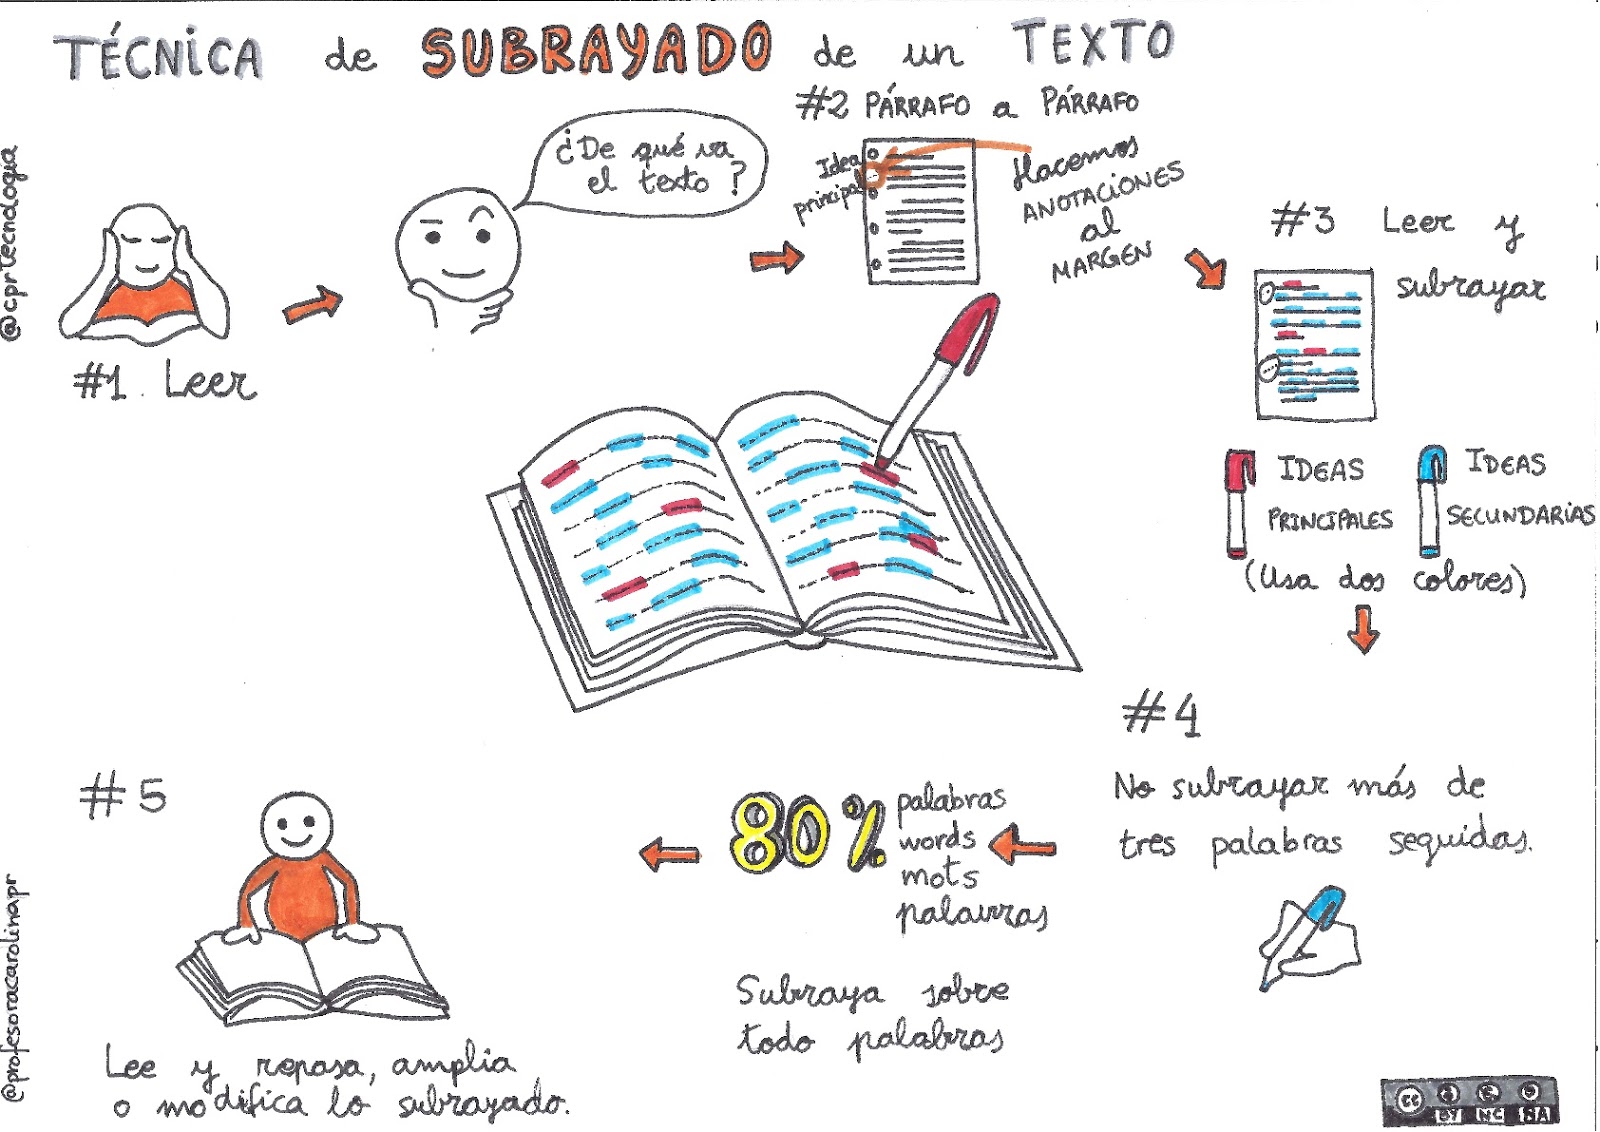 TÉCNICA de SUBRAYADO de un TEXTO
@cprtecnologia
#1. Leer
¿De qué va
el texto?
#2 PÁRRAFO a PÁRRAFO
Idea
principal
Hacemos
ANOTACIONES
al
MARGEN
#3 Leer y
subrayar
IDEAS
PRINCIPALES
IDEAS
SECUNDARIAS
(Usa dos colores)
#4
No subrayar más de
tres palabras seguidas.
80%
palabras
words
mots
palavras
Subraya sobre
todo palabras
#5
Lee y repasa, amplia
o modifica lo subrayado.
@profesoracarolinapr
cc
BY NC SA